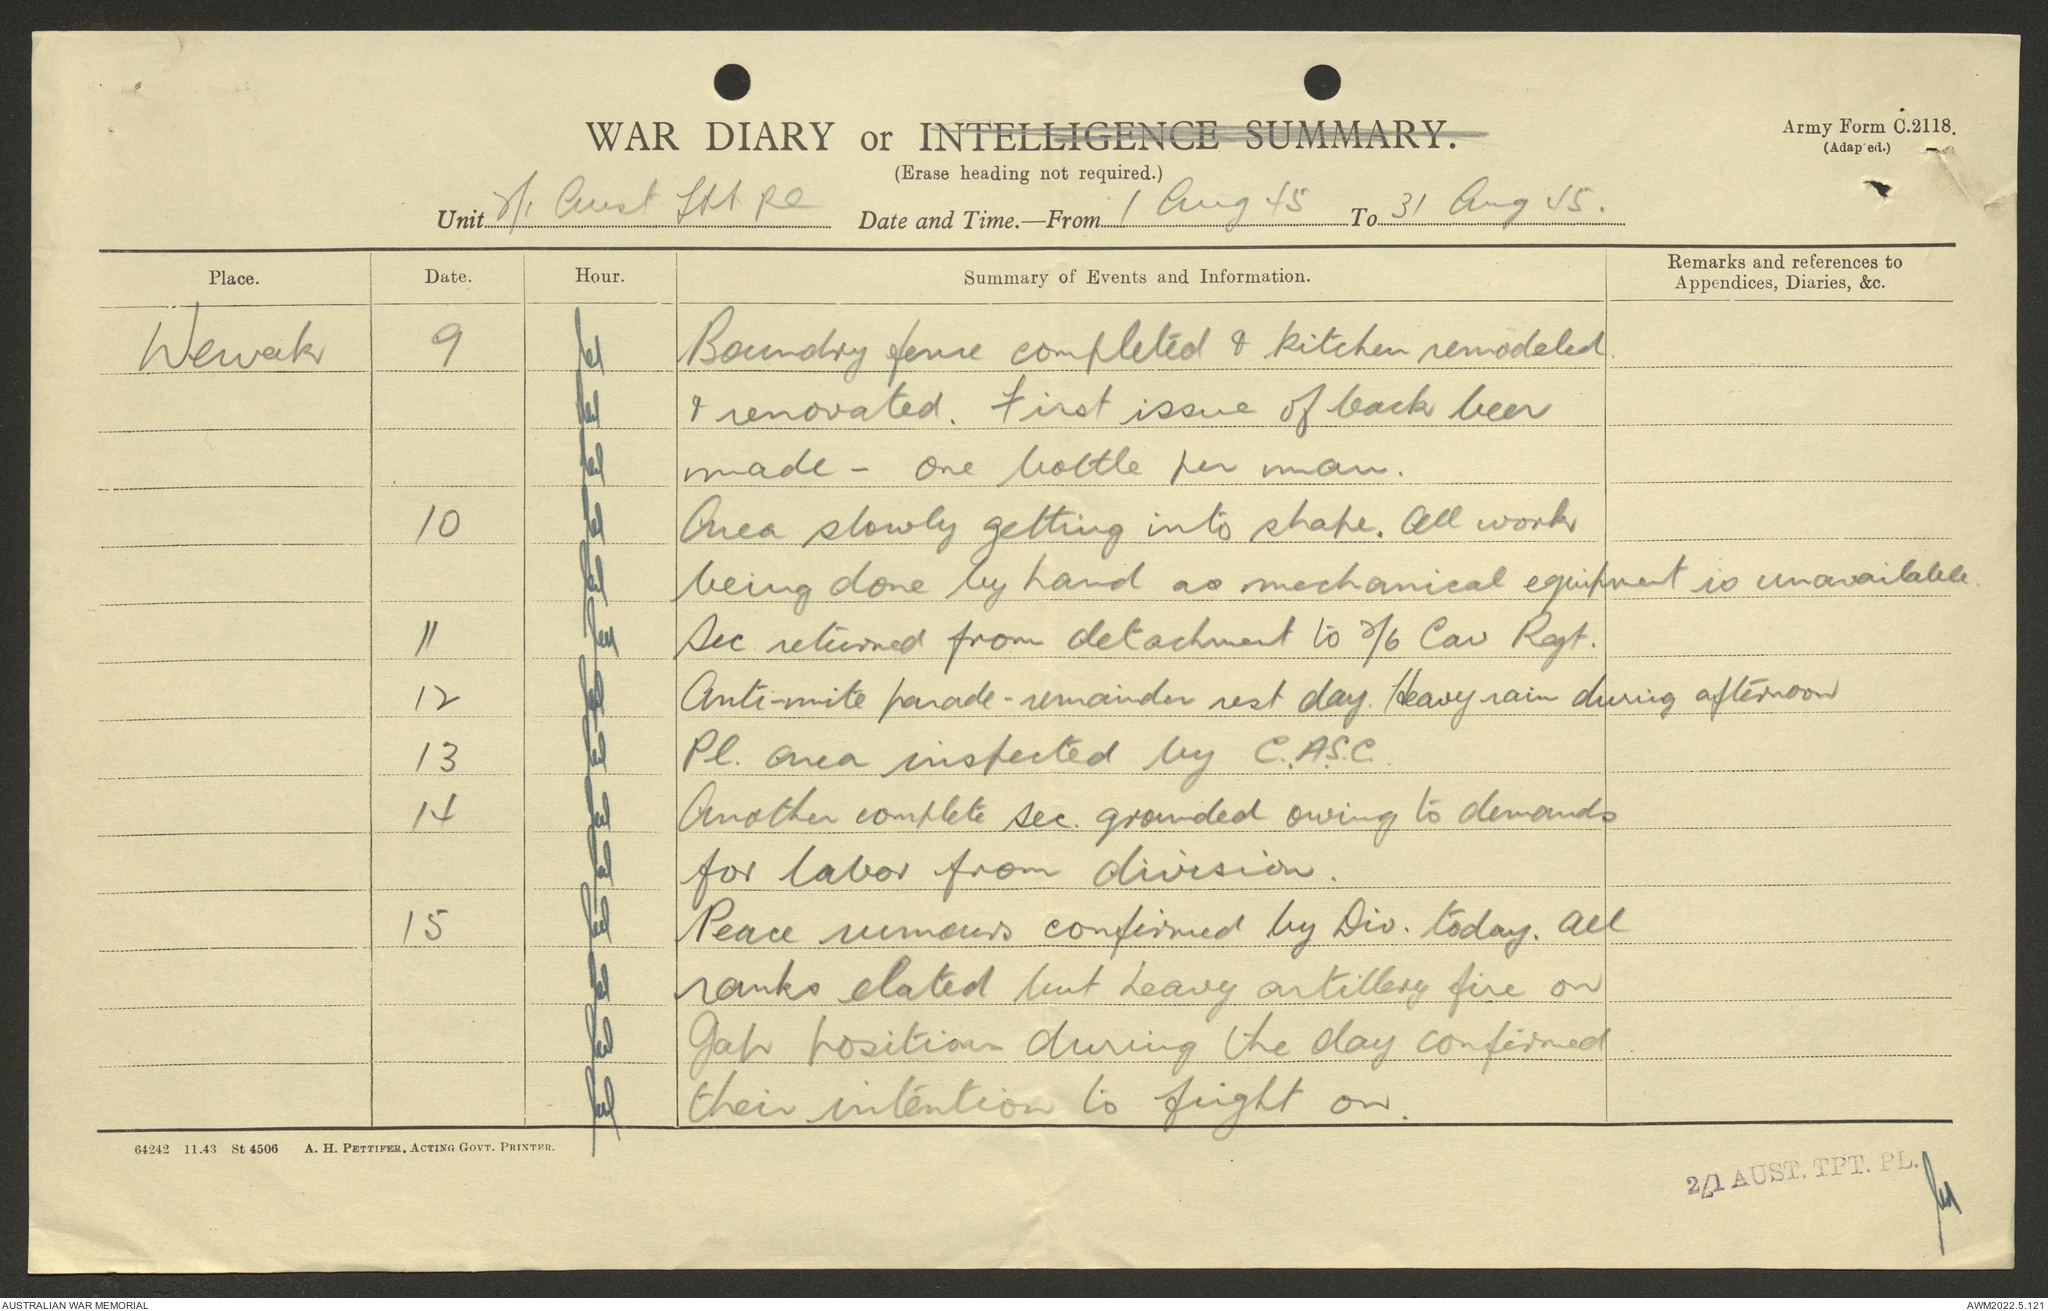 WAR DIARY or INTELLIGENCE SUMMARY.
Army Form C.2118.
(Erase heading not required.)
(Adapted.)
Unit 2/1 Aust Tpt Pl Date and Time.—From 1 Aug 45 To 31 Aug 45.
Place. Date. Hour. Summary of Events and Information. Remarks and references to
Appendices, Diaries, &c.
Wewak 9 Boundry fence completed & kitchen remodeled
& renovated. First issue of back beer
made - one bottle per man.
10 Area slowly getting into shape. All work
being done by hand as mechanical equipment is unavailable.
11 Sec returned from detachment to 2/6 Cav Regt.
12 Anti-mite parade - remainder rest day. Heavy rain during afternoon
13 Pl. area inspected by C.A.S.C.
14 Another complete sec. grounded owing to demands
for labor from division.
15 Peace rumours confirmed by Div. today. All
ranks elated but heavy artillery fire on
Jap positions during the day confirmed
their intention to fight on.
64242 11.43 St 4506 A. H. PETTIFER, ACTING GOVT. PRINTER.
2/1 AUST. TPT. PL.
AUSTRALIAN WAR MEMORIAL
AWM2022.5.121